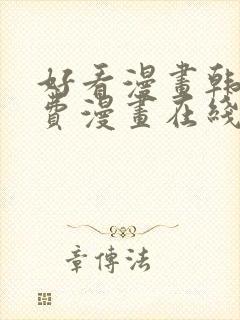 好看漫畫韩
費漫畫在綫
章傳法